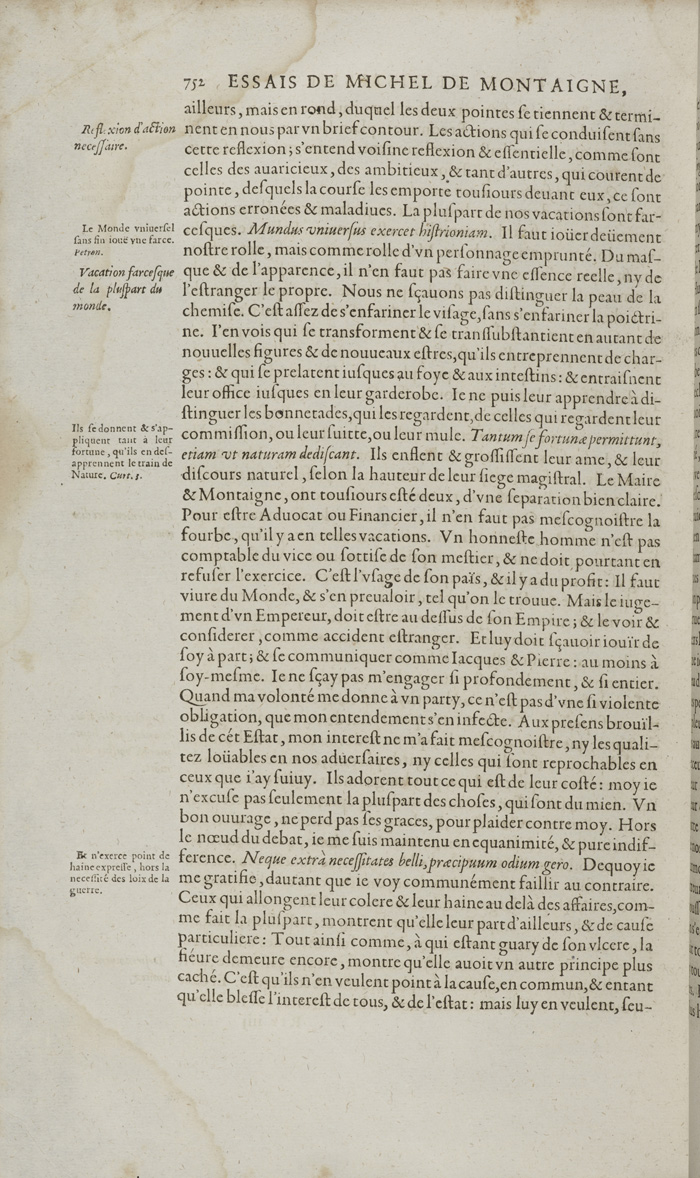 752 ESSAIS DE MICHEL DE MONTAIGNE,
ailleurs, mais en rond, duquel les deux pointes ſe tiennent & termi-
nent en nous par vn brief contour. Les actions qui ſe conduiſent ſans
cette reflexion; s'entend voiſine reflexion & eſſentielle, comme ſont
celles des auaricieux, des ambitieux, & tant d'autres, qui courent de
pointe, deſquels la courſe les emporte touſiours deuant eux, ce ſont
actions erronées & maladiues. La pluſpart de nos vacations ſont far-
ceſques. Mundus vniuerſus exercet hiſtrioniam. Il faut ioüer deüement
noſtre rolle, mais comme rolle d'vn perſonnage emprunté. Du maſ-
que & de l'apparence, il n'en faut pas faire vne eſſence reelle, ny de
l'eſtranger le propre. Nous ne ſçauons pas diſtinguer la peau de la
chemiſe. C'eſt aſſez de s'enfariner le viſage, ſans s'enfariner la poictri-
ne. I'en vois qui ſe transforment & ſe tranſſubſtantient en autant de
nouuelles figures & de nouueaux eſtres, qu'ils entreprennent de char-
ges: & qui ſe prelatent iuſques au foye & aux inteſtins: & entraiſnent
leur office iuſques en leur garderobe. Ie ne puis leur apprendre à di-
ſtinguer les bonnetades, qui les regardent, de celles qui regardent leur
commiſſion, ou leur ſuitte, ou leur mule. Tantum ſe fortunæ permittunt,
etiam vt naturam dediſcant. Ils enflent & groſſiſſent leur ame, & leur
diſcours naturel, ſelon la hauteur de leur ſiege magiſtral. Le Maire
& Montaigne, ont touſiours eſté deux, d'vne ſeparation bien claire.
Pour eſtre Aduocat ou Financier, il n'en faut pas meſcognoiſtre la
fourbe, qu'il y a en telles vacations. Vn honneſte homme n'eſt pas
comptable du vice ou ſottiſe de ſon meſtier, & ne doit pourtant en
refuſer l'exercice. C'eſt l'vſage de ſon païs, & il y a du profit: Il faut
viure du Monde, & s'en preualoir, tel qu'on le trouue. Mais le iuge-
ment d'vn Empereur, doit eſtre au deſſus de ſon Empire; & le voir &
conſiderer, comme accident eſtranger. Et luy doit ſçauoir iouïr de
ſoy à part; & ſe communiquer comme Iacques & Pierre: au moins à
ſoy-meſme. Ie ne ſçay pas m'engager ſi profondement, & ſi entier.
Quand ma volonté me donne à vn party, ce n'eſt pas d'vne ſi violente
obligation, que mon entendement s'en infecte. Aux preſens broüil-
lis de cét Eſtat, mon intereſt ne m'a fait meſcognoiſtre, ny les quali-
tez loüables en nos aduerſaires, ny celles qui ſont reprochables en
ceux que i'ay ſuiuy. Ils adorent tout ce qui eſt de leur coſté: moy ie
n'excuſe pas ſeulement la pluſpart des choſes, qui ſont du mien. Vn
bon ouurage, ne perd pas ſes graces, pour plaider contre moy. Hors
le nœud du debat, ie me ſuis maintenu en equanimité, & pure indif-
ference. Neque extrà neceſſitates belli, præcipuum odium gero. Dequoy ie
me gratifie, dautant que ie voy communément faillir au contraire.
Ceux qui allongent leur colere & leur haine au delà des affaires, com-
me fait la pluſpart, montrent qu'elle leur part d'ailleurs, & de cauſe
particuliere: Tout ainſi comme, à qui eſtant guary de ſon vlcere, la
fiéure demeure encore, montre qu'elle auoit vn autre principe plus
caché. C'eſt qu'ils n'en veulent point à la cauſe, en commun, & entant
qu'elle bleſſe l'intereſt de tous, & de l'eſtat: mais luy en veulent, ſeu-
Reflexion d'action
neceſſaire.
Le Monde vniuerſel
ſans fin iouë vne farce.
Petron.
Vacation farceſque
de la pluſpart du
monde.
Ils ſe donnent & s'ap-
pliquent tant à leur
fortune, qu'ils en deſ-
apprennent le train de
Nature. Curt. 3.
Et n'exerce point de
haine expreſſe, hors la
neceſſité des loix de la
guerre.